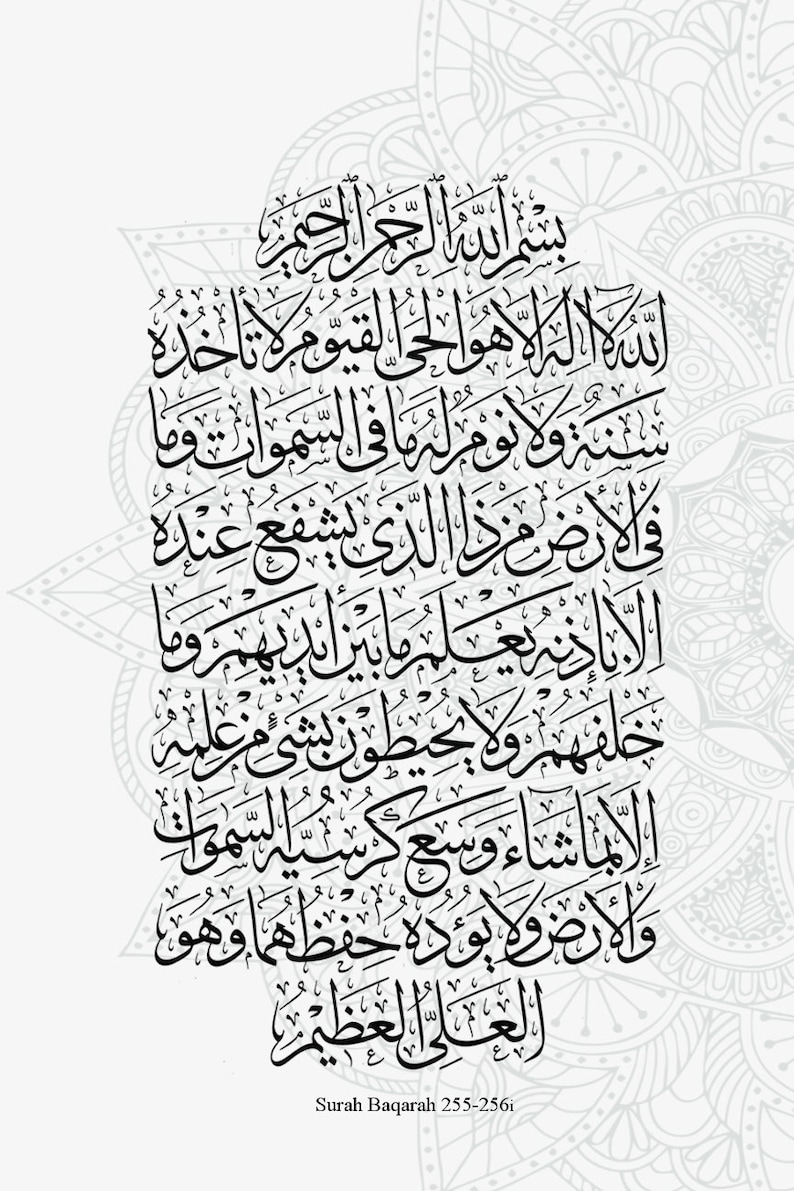 بِسْمِ اللّٰهِ الرَّحْمٰنِ الرَّحِيْمِ
اَللّٰهُ لَا اِلٰهَ اِلَّا هُوَ الْحَيُّ الْقَيُّوْمُ لَا تَأْخُذُهُ
سِنَةٌ وَلَا نَوْمٌ لَهُ مَا فِي السَّمٰوَاتِ وَمَا
فِي الْأَرْضِ مَنْ ذَا الَّذِي يَشْفَعُ عِنْدَهُ
اِلَّا بِإِذْنِهِ يَعْلَمُ مَا بَيْنَ أَيْدِيْهِمْ وَمَا
خَلْفَهُمْ وَلَا يُحِيْطُوْنَ بِشَيْءٍ مِنْ عِلْمِهِ
إِلَّا بِمَا شَاءَ وَسِعَ كُرْسِيُّهُ السَّمٰوَاتِ
وَالْأَرْضَ وَلَا يَؤُدُهُ حِفْظُهُمَا وَهُوَ
الْعَلِيُّ الْعَظِيْمُ
Surah Baqarah 255-256i